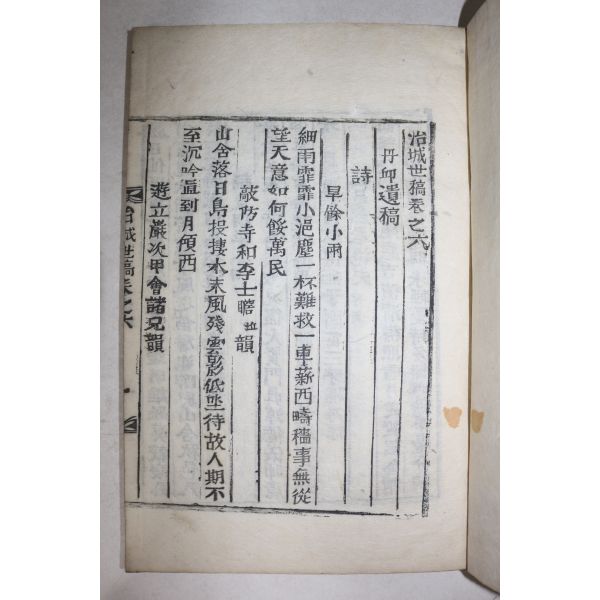 冶城世稿卷之六
丹邱遺稿
詩
旱餘小雨
細雨霏霏小浥塵一杯難救一車薪西疇穡事無從
望天意如何餒萬民
敲防寺和李士瞻韻
山含落日鳥投捿木末風殘雲影低坐待故人期不
至沉吟直到月傾西
遊立巖次甲會諸兄韻
冶城世稿卷之六